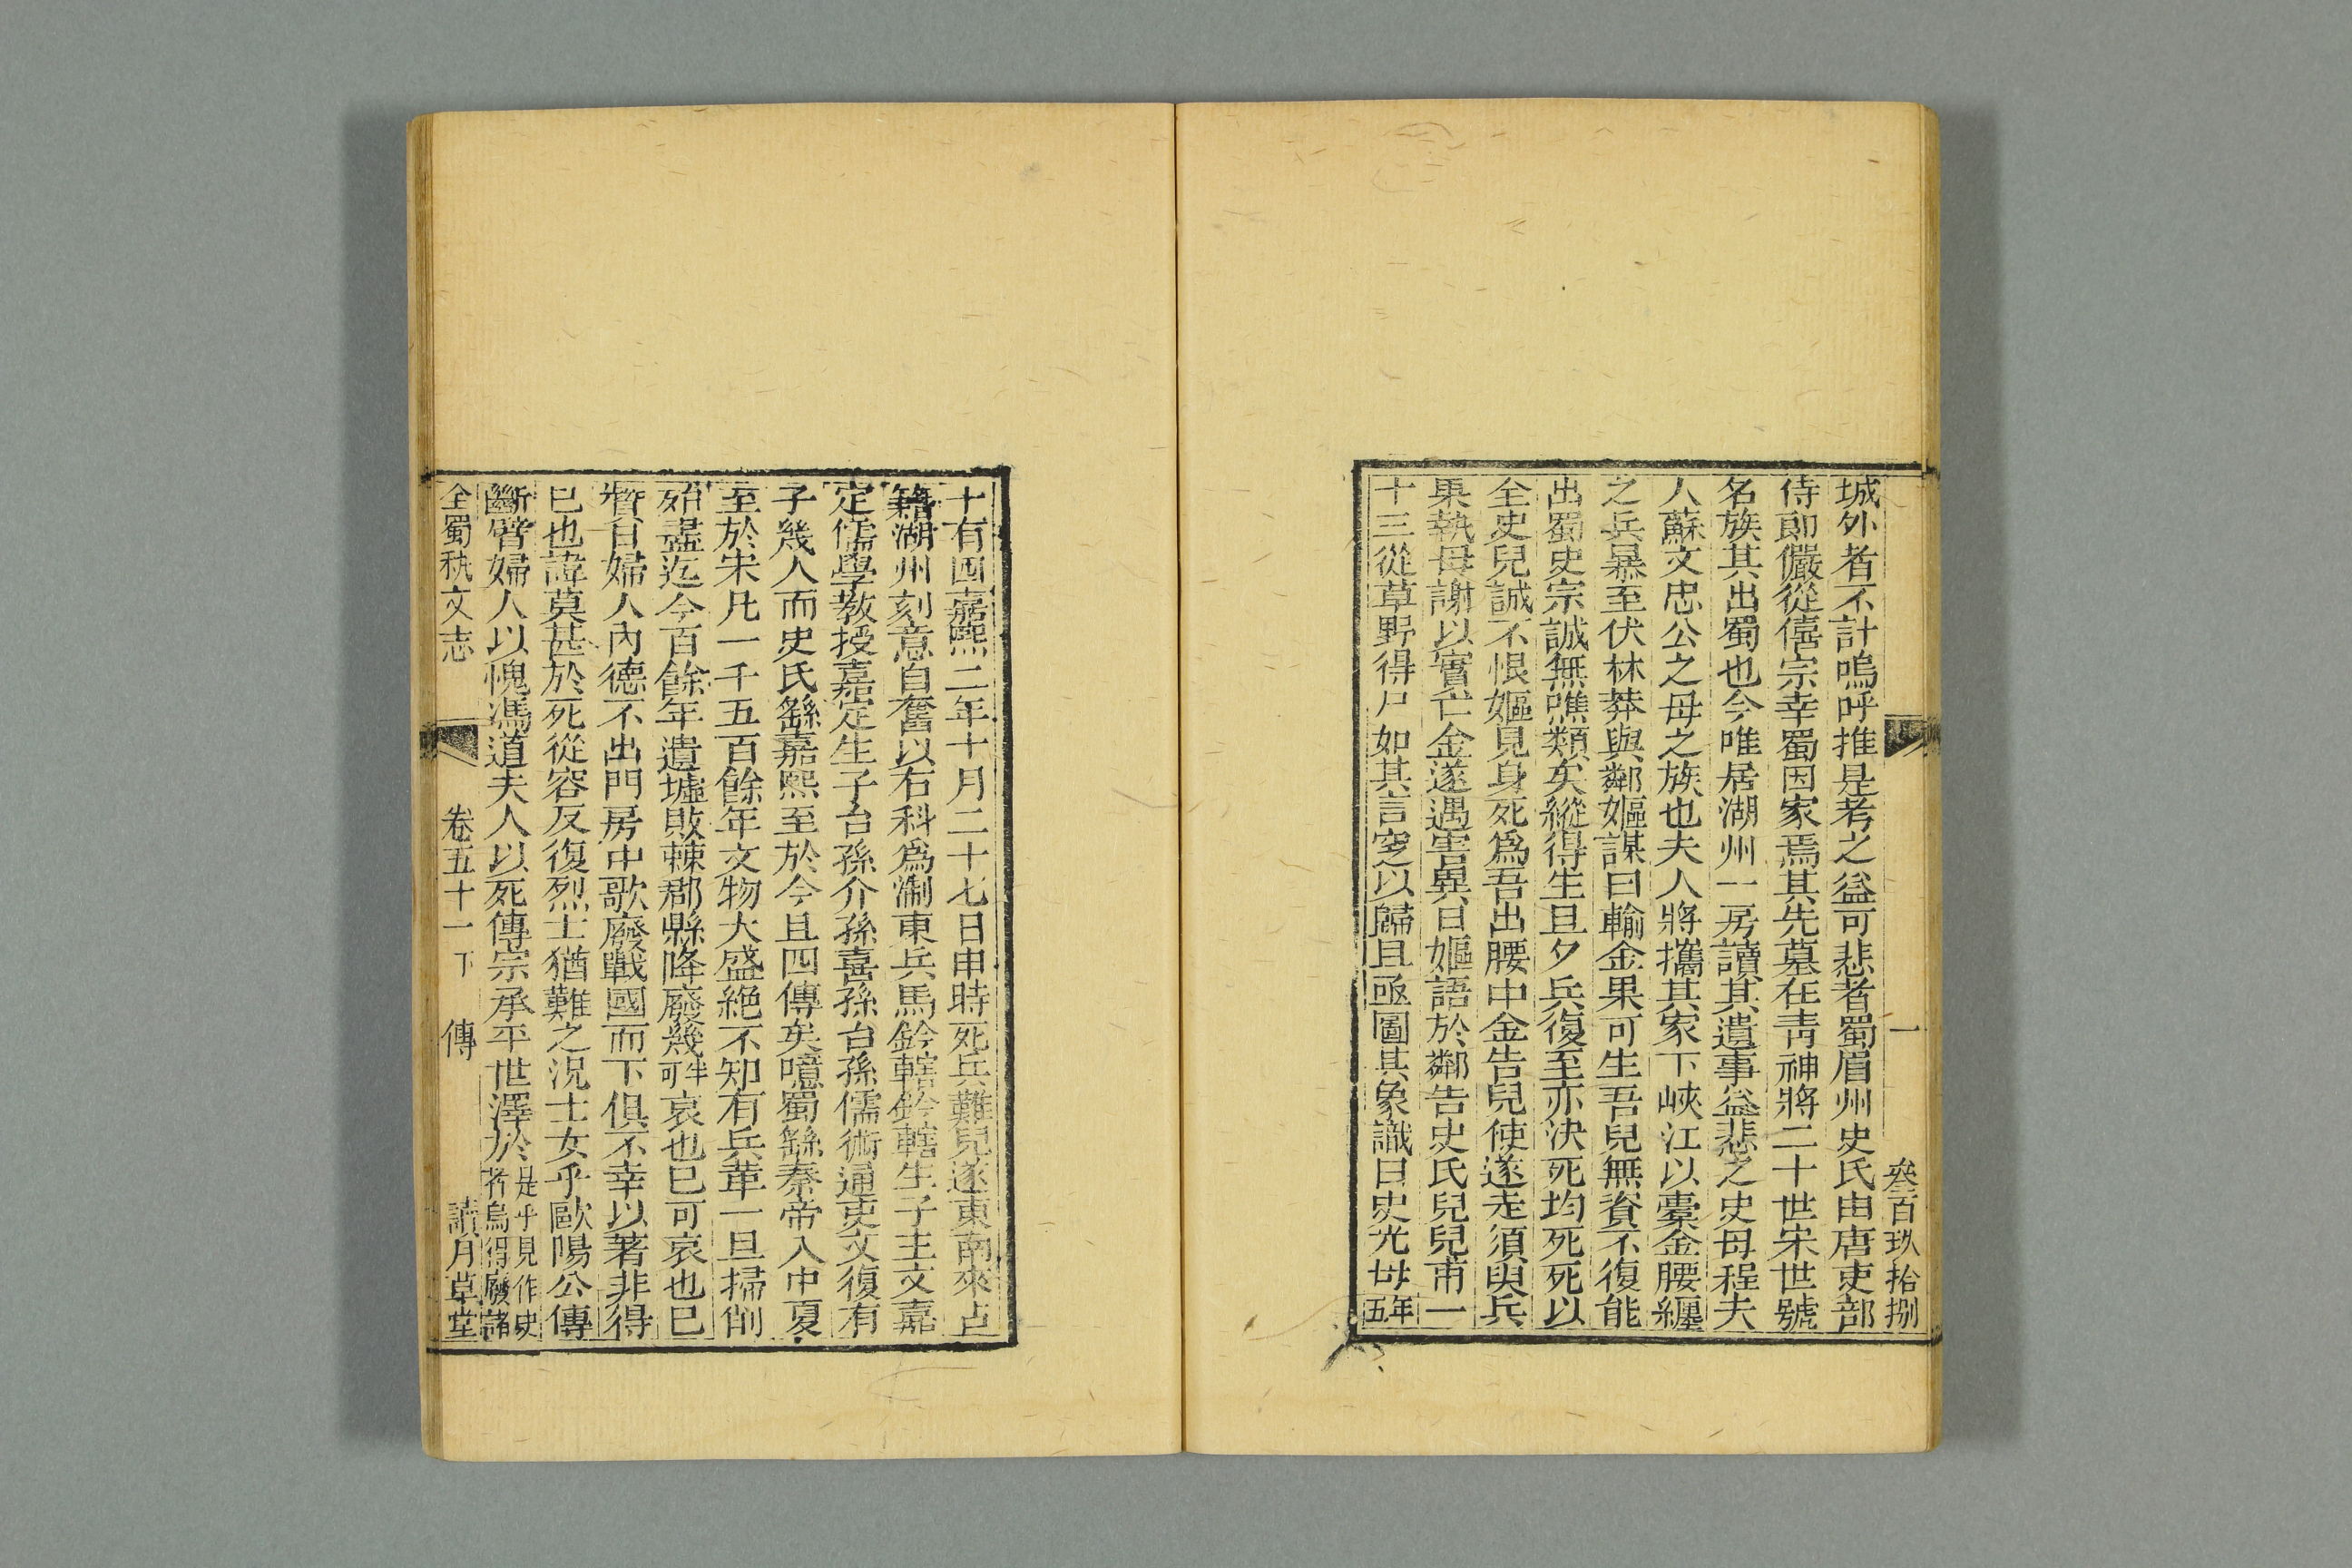 一 叄百玖拾捌
城外者不計嗚呼推是考之益可悲者蜀眉州史氏由唐吏部
侍郎儼從僖宗幸蜀因家焉其先墓在青神將二十世宋世號
名族其出蜀也今唯居湖州一房讀其遺事益悲之史母程夫
人蘇文忠公之母之族也夫人將攜其家下峽江以橐金腰纏
之兵暴至伏林莽與鄰嫗謀曰輸金果可生吾兒無資不復能
出蜀史宗誠無噍類矣縱得生旦夕兵復至亦決死均死死以
全史兒誠不恨嫗見身死爲吾出腰中金告兒使遂走須臾兵
果執母謝以實亡金遂遇害異日嫗語於鄰告史氏兒兒甫一
十三從草野得尸如其言窆以歸且亟圖其象識曰史光母年五
十有四嘉熙二年十月二十七日申時死兵難兒遂東南來占
籍湖州刻意自奮以右科爲淛東兵馬鈐轄鈐轄生子主文嘉
定儒學教授嘉定生子台孫介孫喜孫台孫儒術通吏文復有
子幾人而史氏繇嘉熙至於今且四傳矣噫蜀繇秦帝入中夏
至於宋凡一千五百餘年文物大盛絶不知有兵革一旦掃削
殆盡迄今百餘年遺墟敗棘郡縣降廢幾半可哀也巳可哀也巳
贊曰婦人內德不出門房中歌廢戰國而下俱不幸以著非得
巳也諱莫甚於死從容反復烈士猶難之況士女乎歐陽公傳
斷臂婦人以愧馮道夫人以死傳宗承平世澤於是乎見作史者烏得廢諸
全蜀秇文志 卷五十一下 傳 讀月草堂